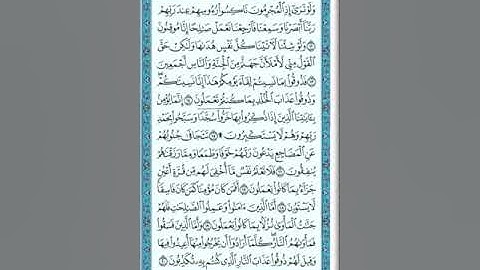 وَلَوْ تَرَىٰٓ إِذِ ٱلْمُجْرِمُونَ نَاكِسُواْ رُءُوسِهِمْ عِندَ رَبِّهِمْ
رَبَّنَآ أَبْصَرْنَا وَسَمِعْنَا فَٱرْجِعْنَا نَعْمَلْ صَٰلِحًا إِنَّا مُوقِنُونَ
١٢ وَلَوْ شِئْنَا لَءَاتَيْنَا كُلَّ نَفْسٍ هُدَىٰهَا وَلَٰكِنْ حَقَّ
ٱلْقَوْلُ مِنِّى لَأَمْلَأَنَّ جَهَنَّمَ مِنَ ٱلْجِنَّةِ وَٱلنَّاسِ أَجْمَعِينَ
١٣ فَذُوقُواْ بِمَا نَسِيتُمْ لِقَآءَ يَوْمِكُمْ هَٰذَآ إِنَّا نَسِينَٰكُمْ
وَذُوقُواْ عَذَابَ ٱلْخُلْدِ بِمَا كُنتُمْ تَعْمَلُونَ ١٤ إِنَّمَا يُؤْمِنُ
بِـَٔايَٰتِنَا ٱلَّذِينَ إِذَا ذُكِّرُواْ بِهَا خَرُّواْ سُجَّدًا وَسَبَّحُواْ بِحَمْدِ
رَبِّهِمْ وَهُمْ لَا يَسْتَكْبِرُونَ ۩ ١٥ تَتَجَافَىٰ جُنُوبُهُمْ
عَنِ ٱلْمَضَاجِعِ يَدْعُونَ رَبَّهُمْ خَوْفًا وَطَمَعًا وَمِمَّا رَزَقْنَٰهُمْ
يُنفِقُونَ ١٦ فَلَا تَعْلَمُ نَفْسٌ مَّآ أُخْفِىَ لَهُم مِّن قُرَّةِ أَعْيُنٍ
جَزَآءًۢ بِمَا كَانُواْ يَعْمَلُونَ ١٧ أَفَمَن كَانَ مُؤْمِنًا كَمَن كَانَ فَاسِقًا
لَّا يَسْتَوُۥنَ ١٨ أَمَّا ٱلَّذِينَ ءَامَنُواْ وَعَمِلُواْ ٱلصَّٰلِحَٰتِ فَلَهُمْ
جَنَّٰتُ ٱلْمَأْوَىٰ نُزُلًۢا بِمَا كَانُواْ يَعْمَلُونَ ١٩ وَأَمَّا ٱلَّذِينَ فَسَقُواْ
فَمَأْوَىٰهُمُ ٱلنَّارُ كُلَّمَآ أَرَادُوٓاْ أَن يَخْرُجُواْ مِنْهَآ أُعِيدُواْ فِيهَا
وَقِيلَ لَهُمْ ذُوقُواْ عَذَابَ ٱلنَّارِ ٱلَّذِى كُنتُم بِهِۦ تُكَذِّبُونَ ٢٠